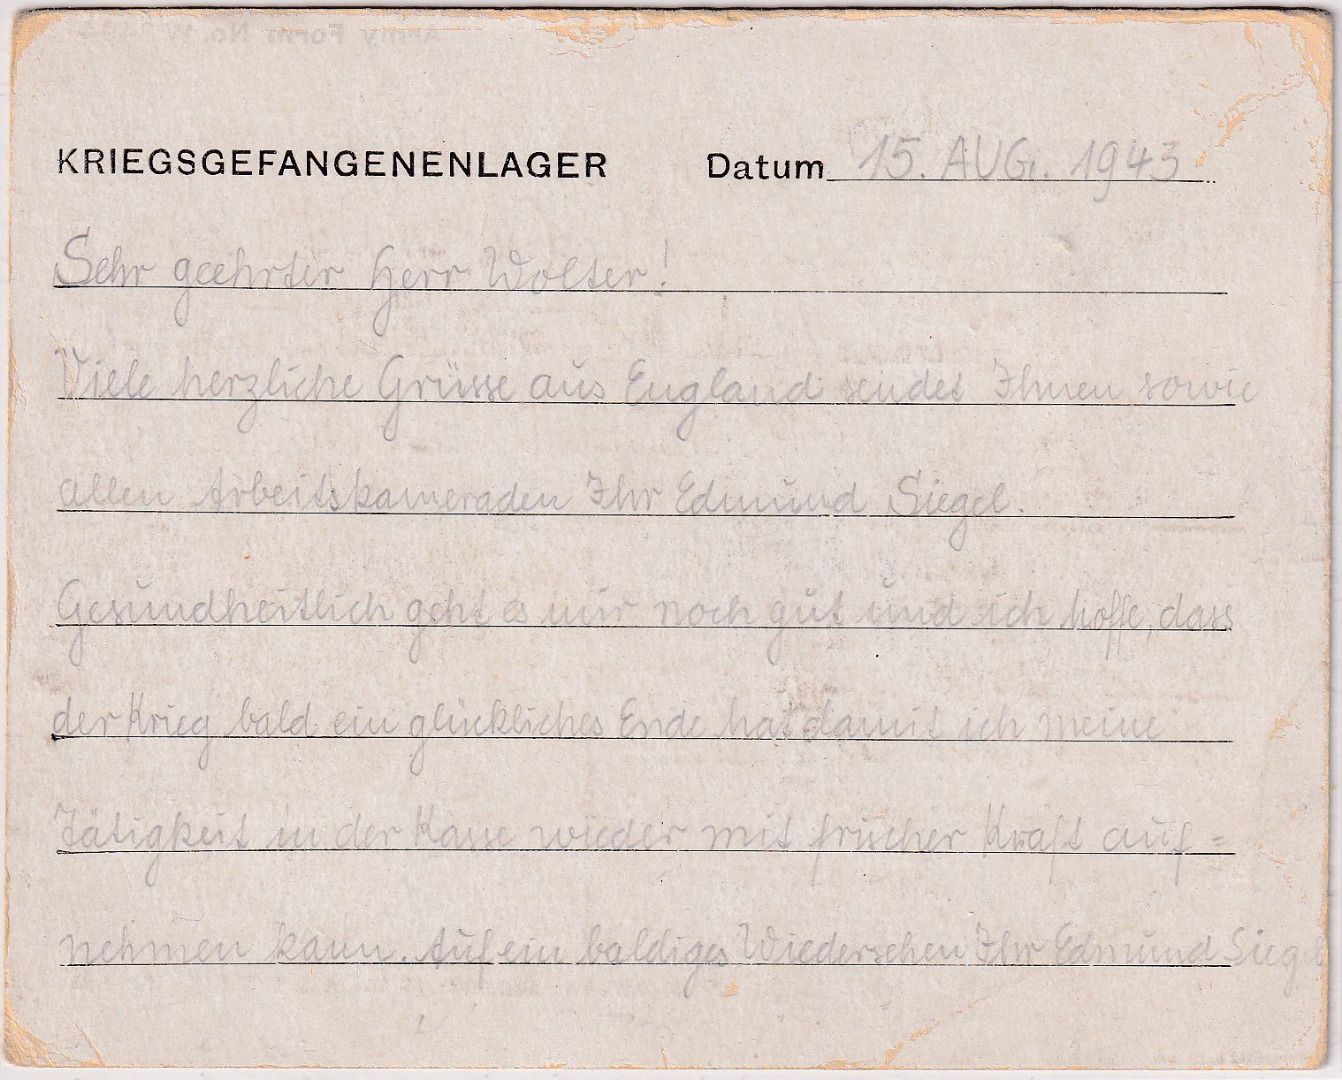 KRIEGSGEFANGENENLAGER Datum 15. AUG. 1943
Sehr geehrter Herr Wolter!
Viele herzliche Grüsse aus England sendet Ihnen sowie
allen Arbeitskameraden Ihr Edmund Siegel.
Gesundheitlich geht es mir noch gut und ich hoffe, dass
der Krieg bald ein glückliches Ende hat damit ich meine
Tätigkeit in der Kasse wieder mit frischer Kraft auf=
nehmen kann. Auf ein baldiges Wiedersehen Ihr Edmund Siegel